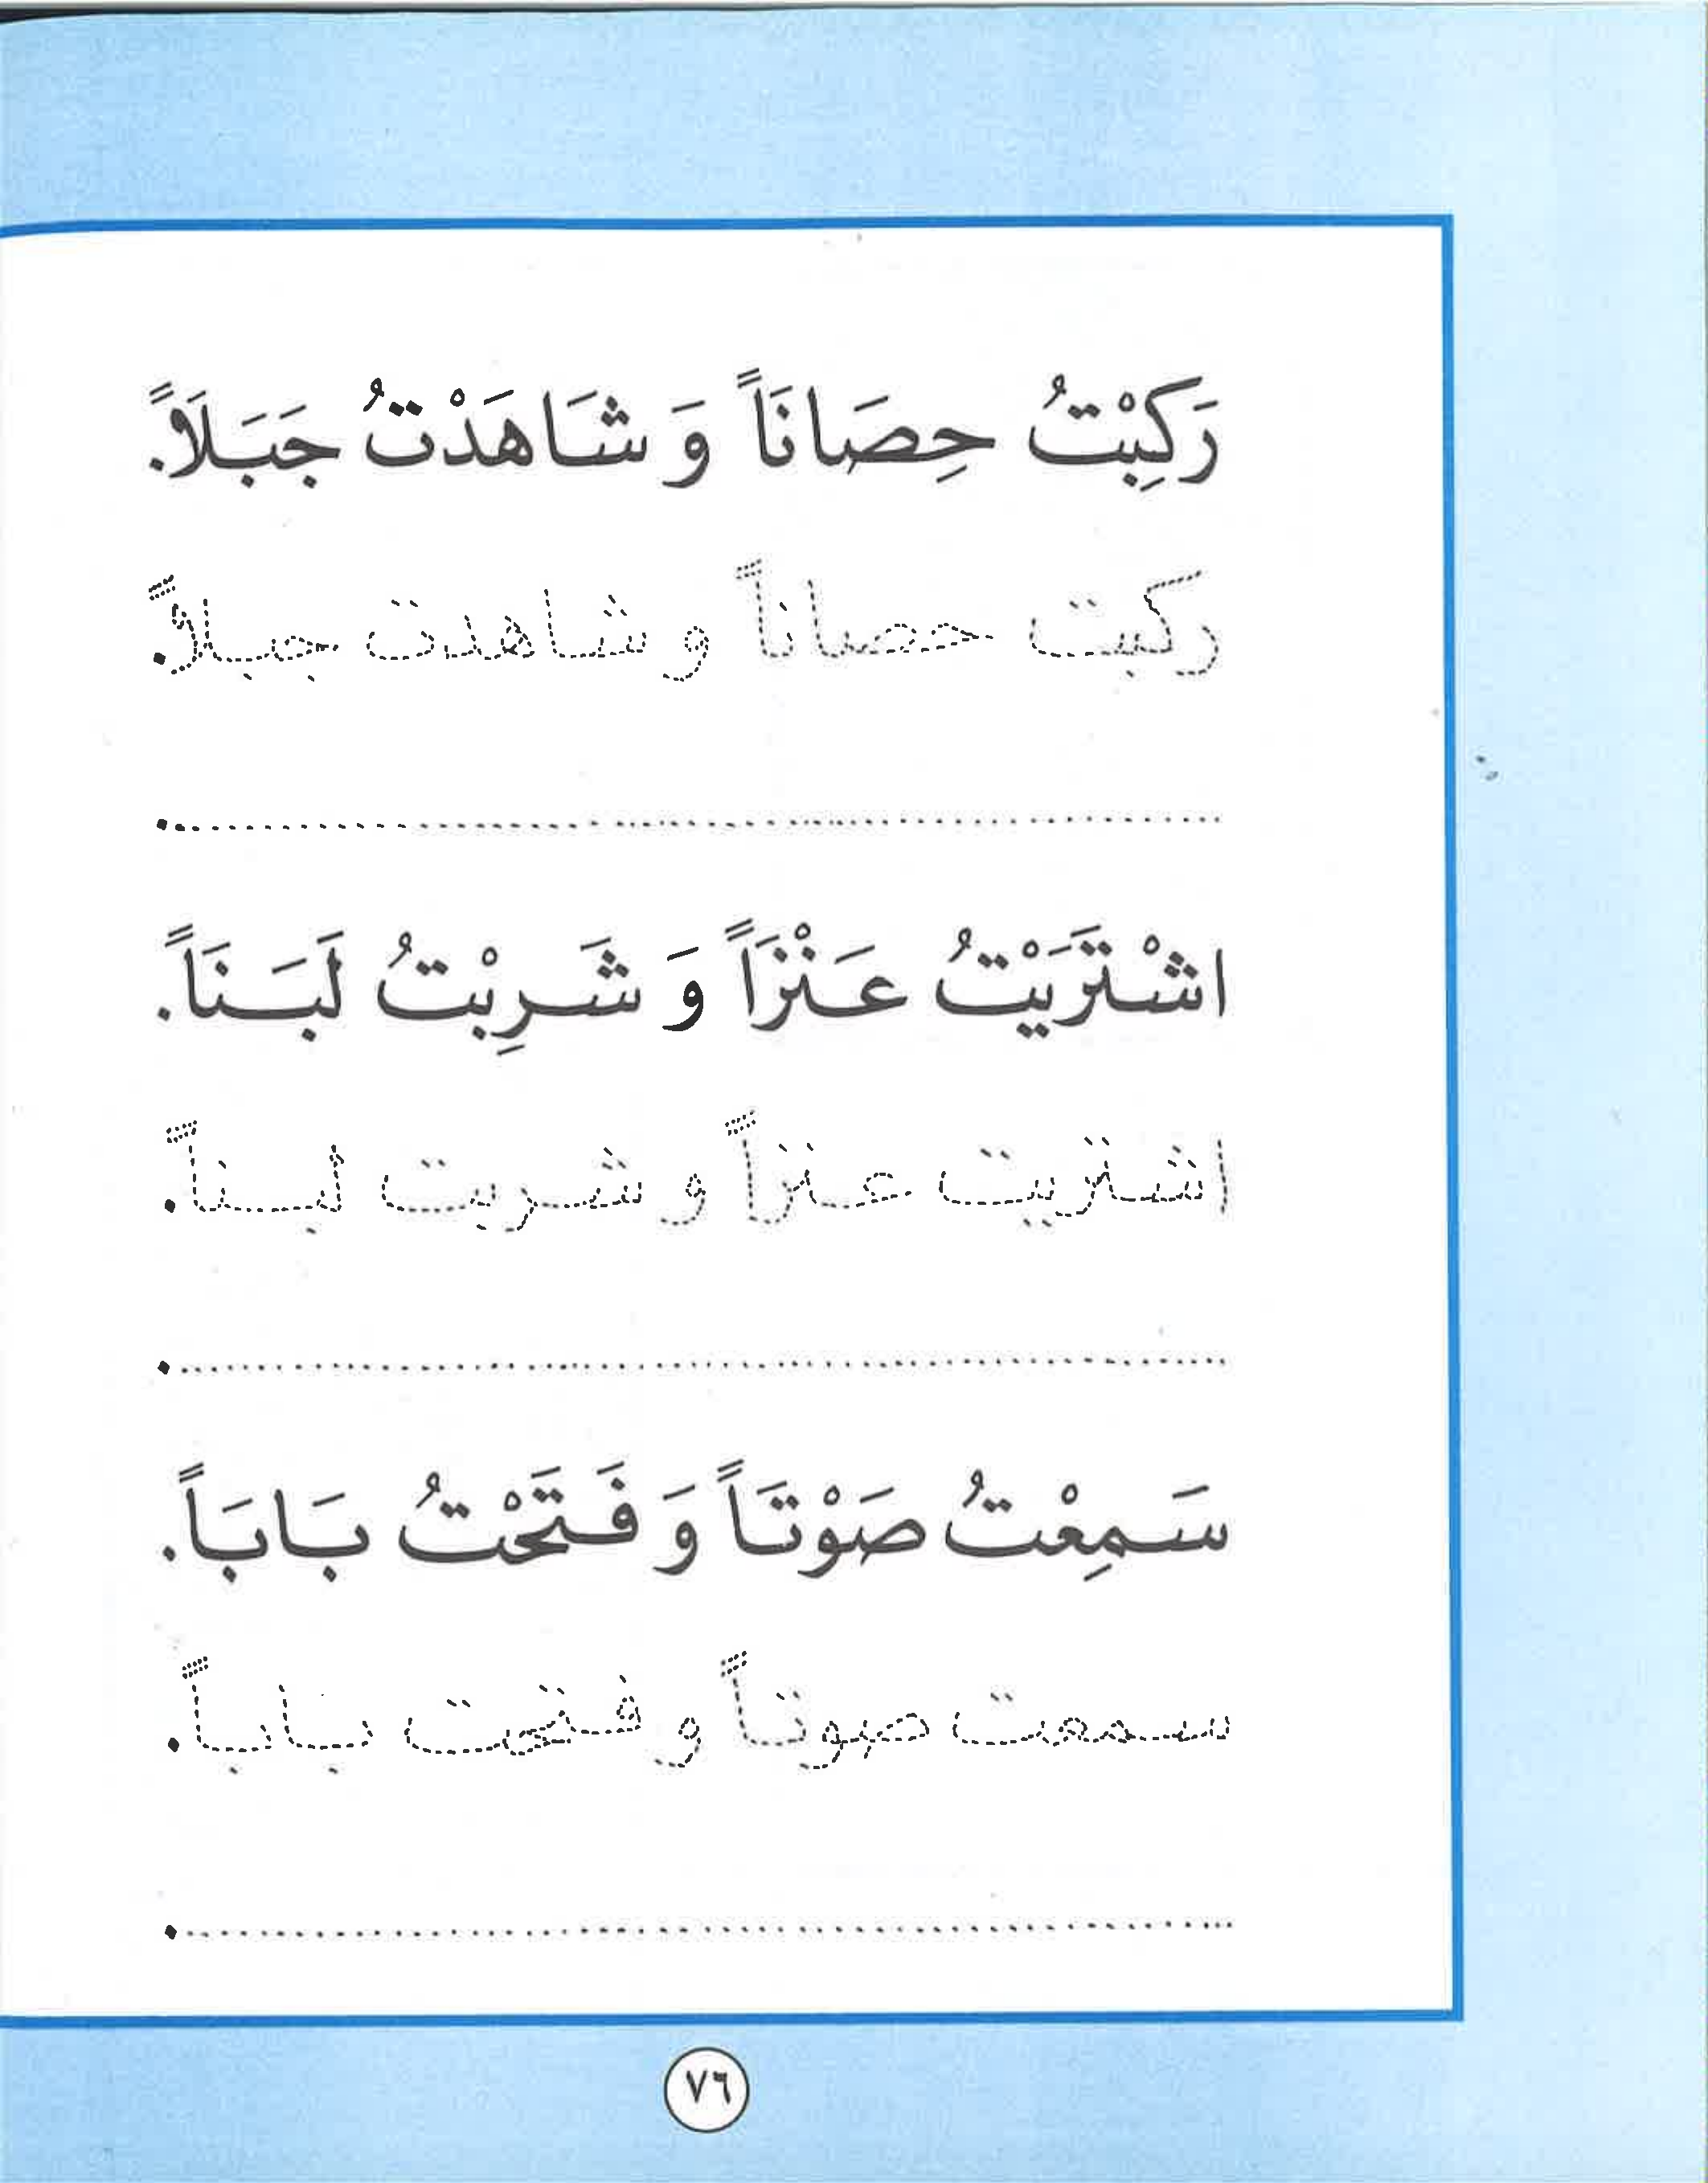 رَكِبْتُ حِصَانَاً وَ شَاهَدْتُ جَبَلَاً.
ركبت حصاناً و شاهدت جبلاً.
اشْتَرَيْتُ عَنْزَاً وَ شَرِبْتُ لَبَنَاً.
اشتريت عنزاً و شربت لبناً.
سَمِعْتُ صَوْتَاً وَ فَتَحْتُ بَابَاً.
سمعت صوتاً و فتحت باباً.
٧٦